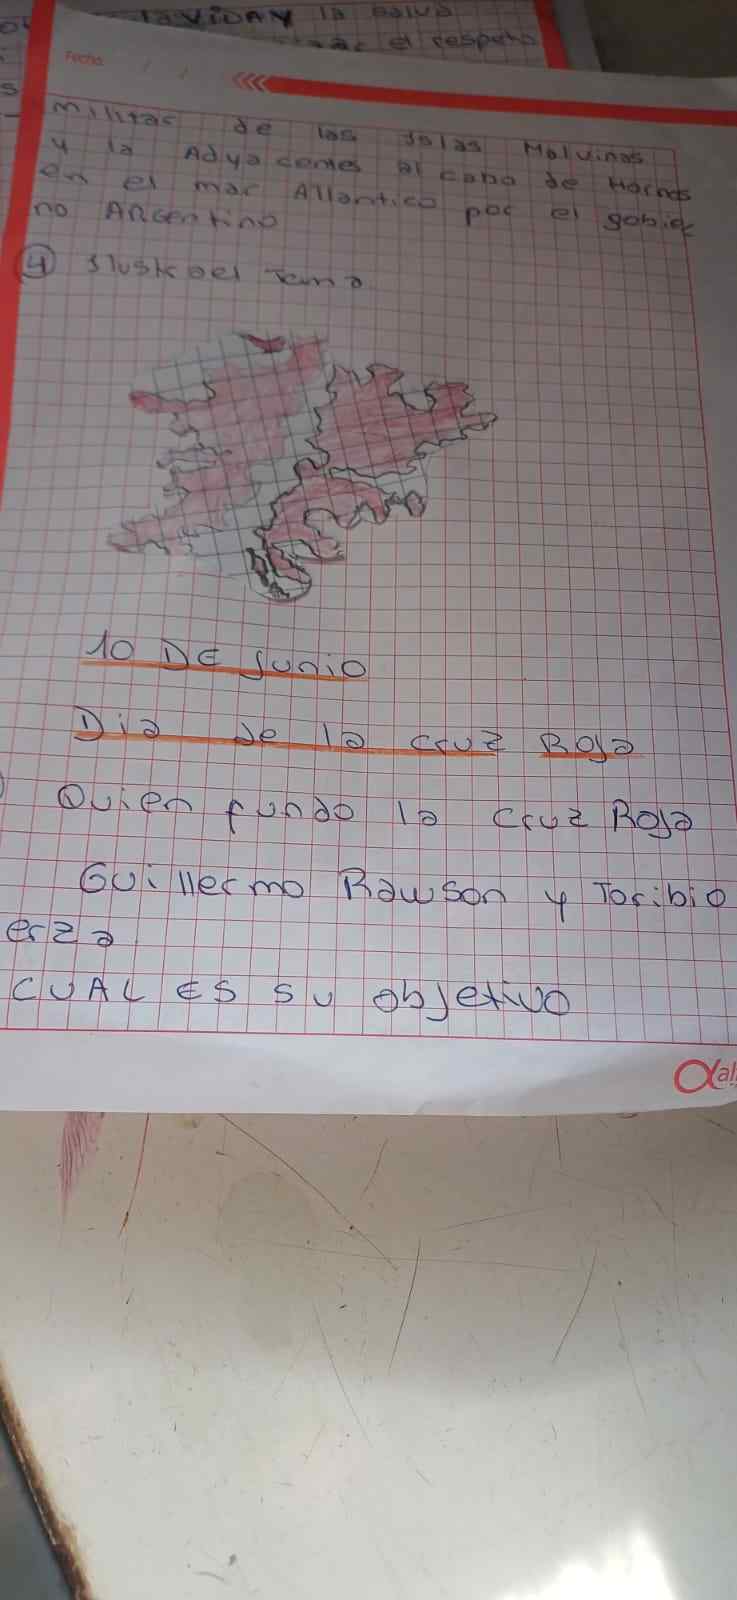 la VIDAY la salud
el respeto
Fecha
militar de las Islas Malvinas
y la Adyacentes al cabo de Hornos
en el mar Atlantico por el gobier
no Argentino
4 Ilustro el Tema
10 DE Junio
Dia de la cruz Roja
Quien fundo la Cruz Roja
Guillermo Rawson y Toribio
erza
CUAL ES SU objetivo